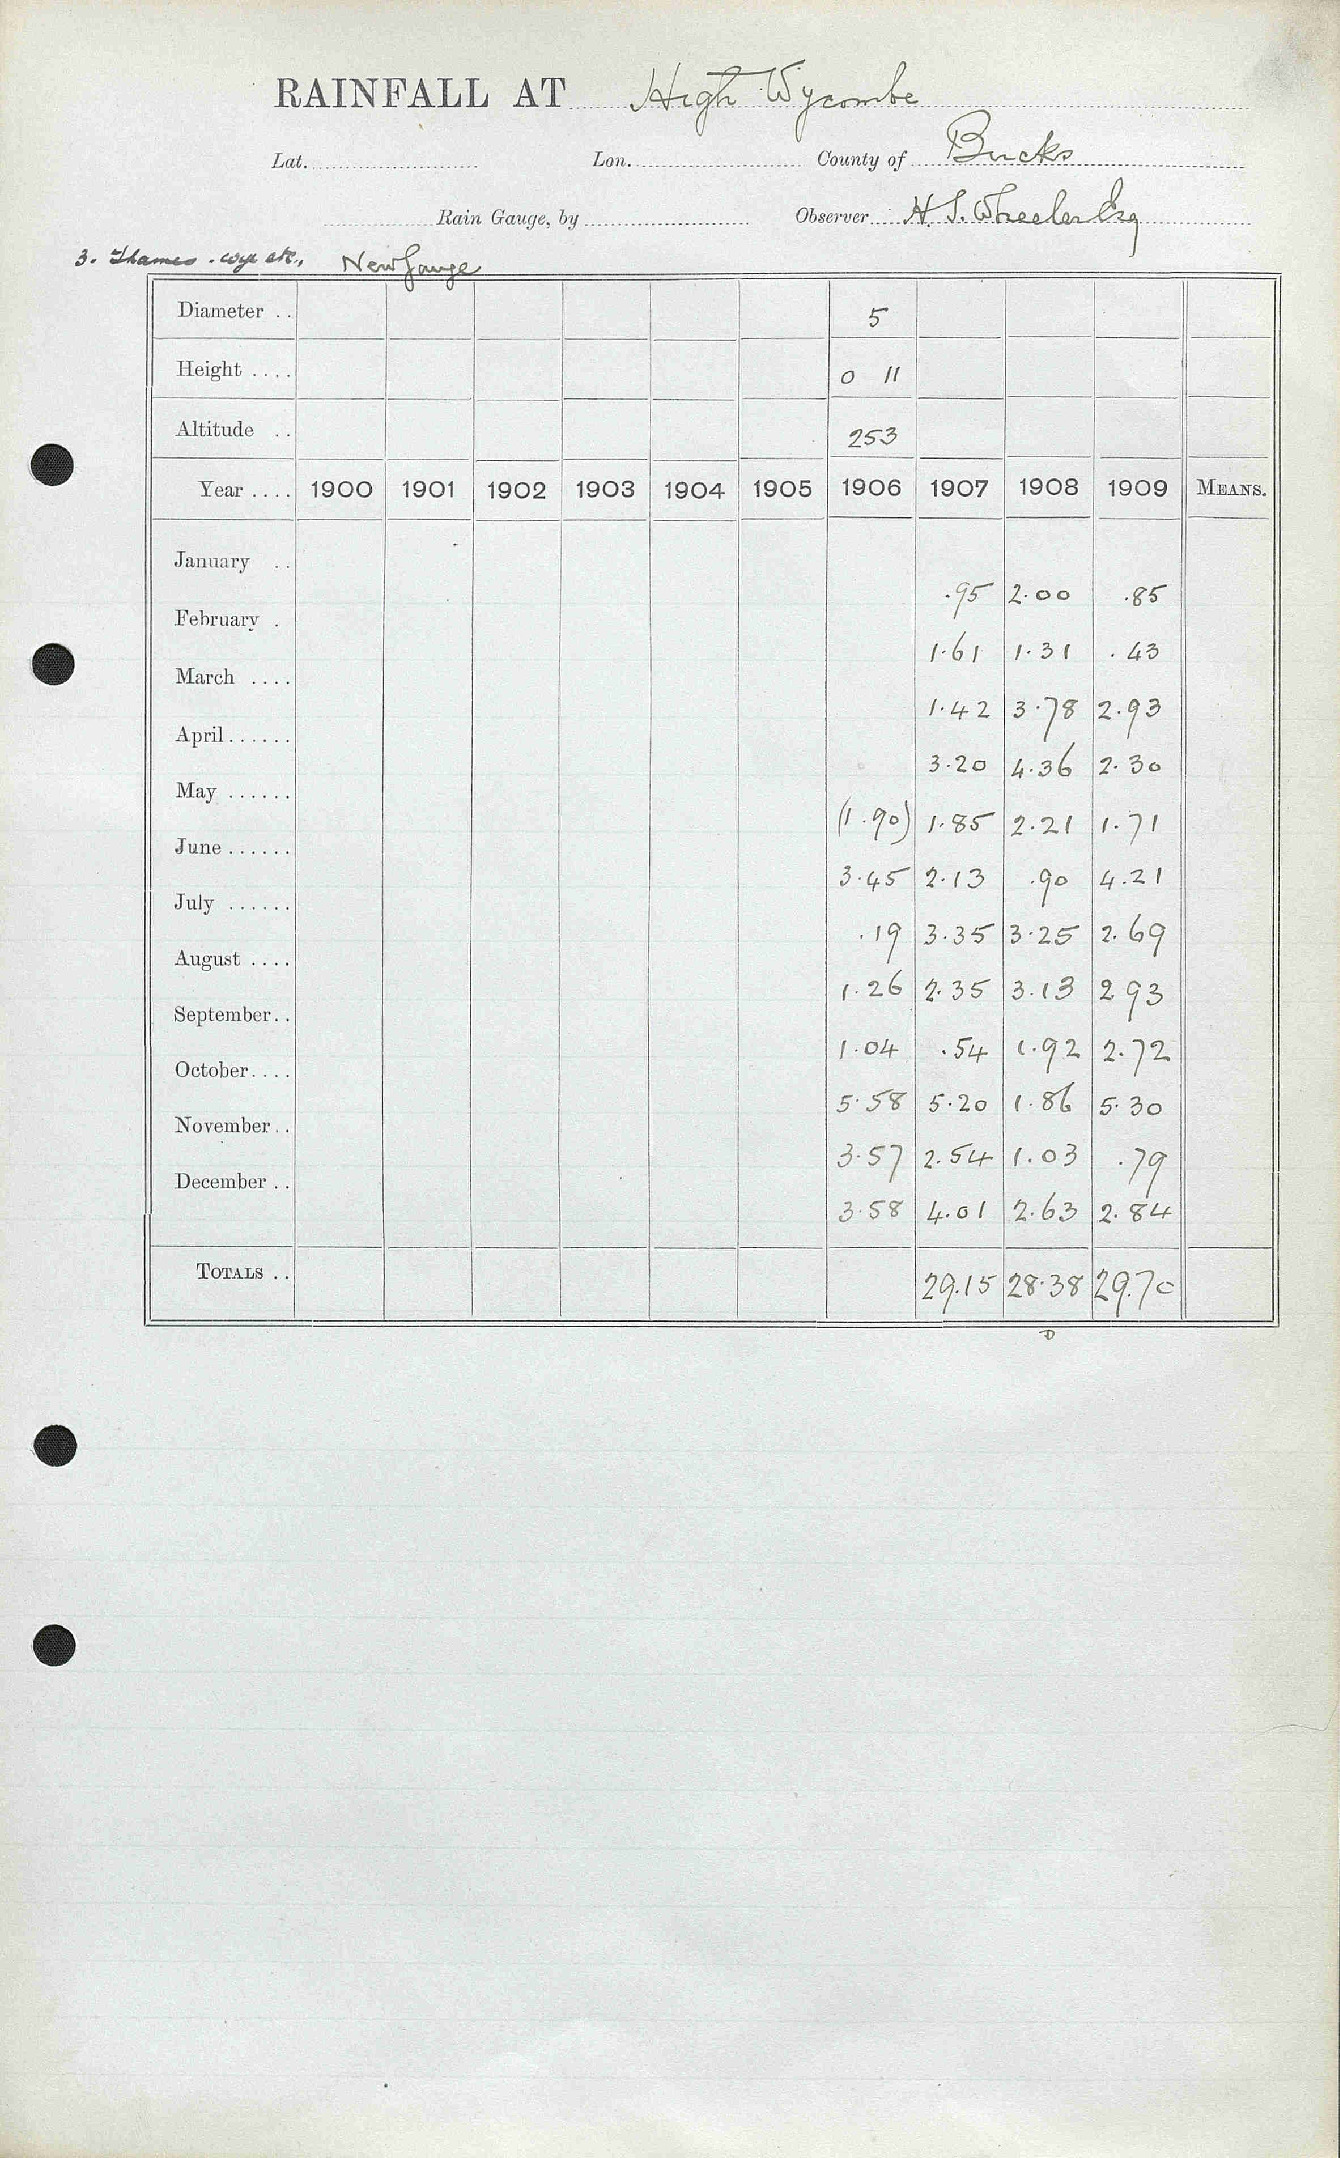 RAINFALL AT High Wycombe
Lat. Lon. County of Bucks
Rain Gauge, by Observer H. S. Wheeler Esq
3. Thames . Wye etc., New Gauge
Diameter .. 5
Height .... 0 11
Altitude .. 253
Year .... 1900 1901 1902 1903 1904 1905 1906 1907 1908 1909 MEANS.
January .. .95 2.00 .85
February . 1.61 1.31 .43
March .... 1.42 3.78 2.93
April...... 3.20 4.36 2.30
May ...... (1.90) 1.85 2.21 1.71
June ...... 3.45 2.13 .90 4.21
July ...... .19 3.35 3.25 2.69
August .... 1.26 2.35 3.13 2.93
September.. 1.04 .54 1.92 2.72
October.... 5.58 5.20 1.86 5.30
November.. 3.57 2.54 1.03 .79
December .. 3.58 4.01 2.63 2.84
TOTALS .. 29.15 28.38 29.70
D